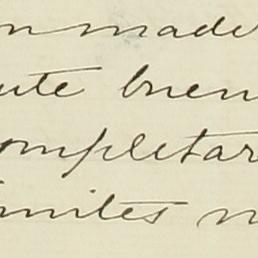 n made
ute buen
ompletar
imites n